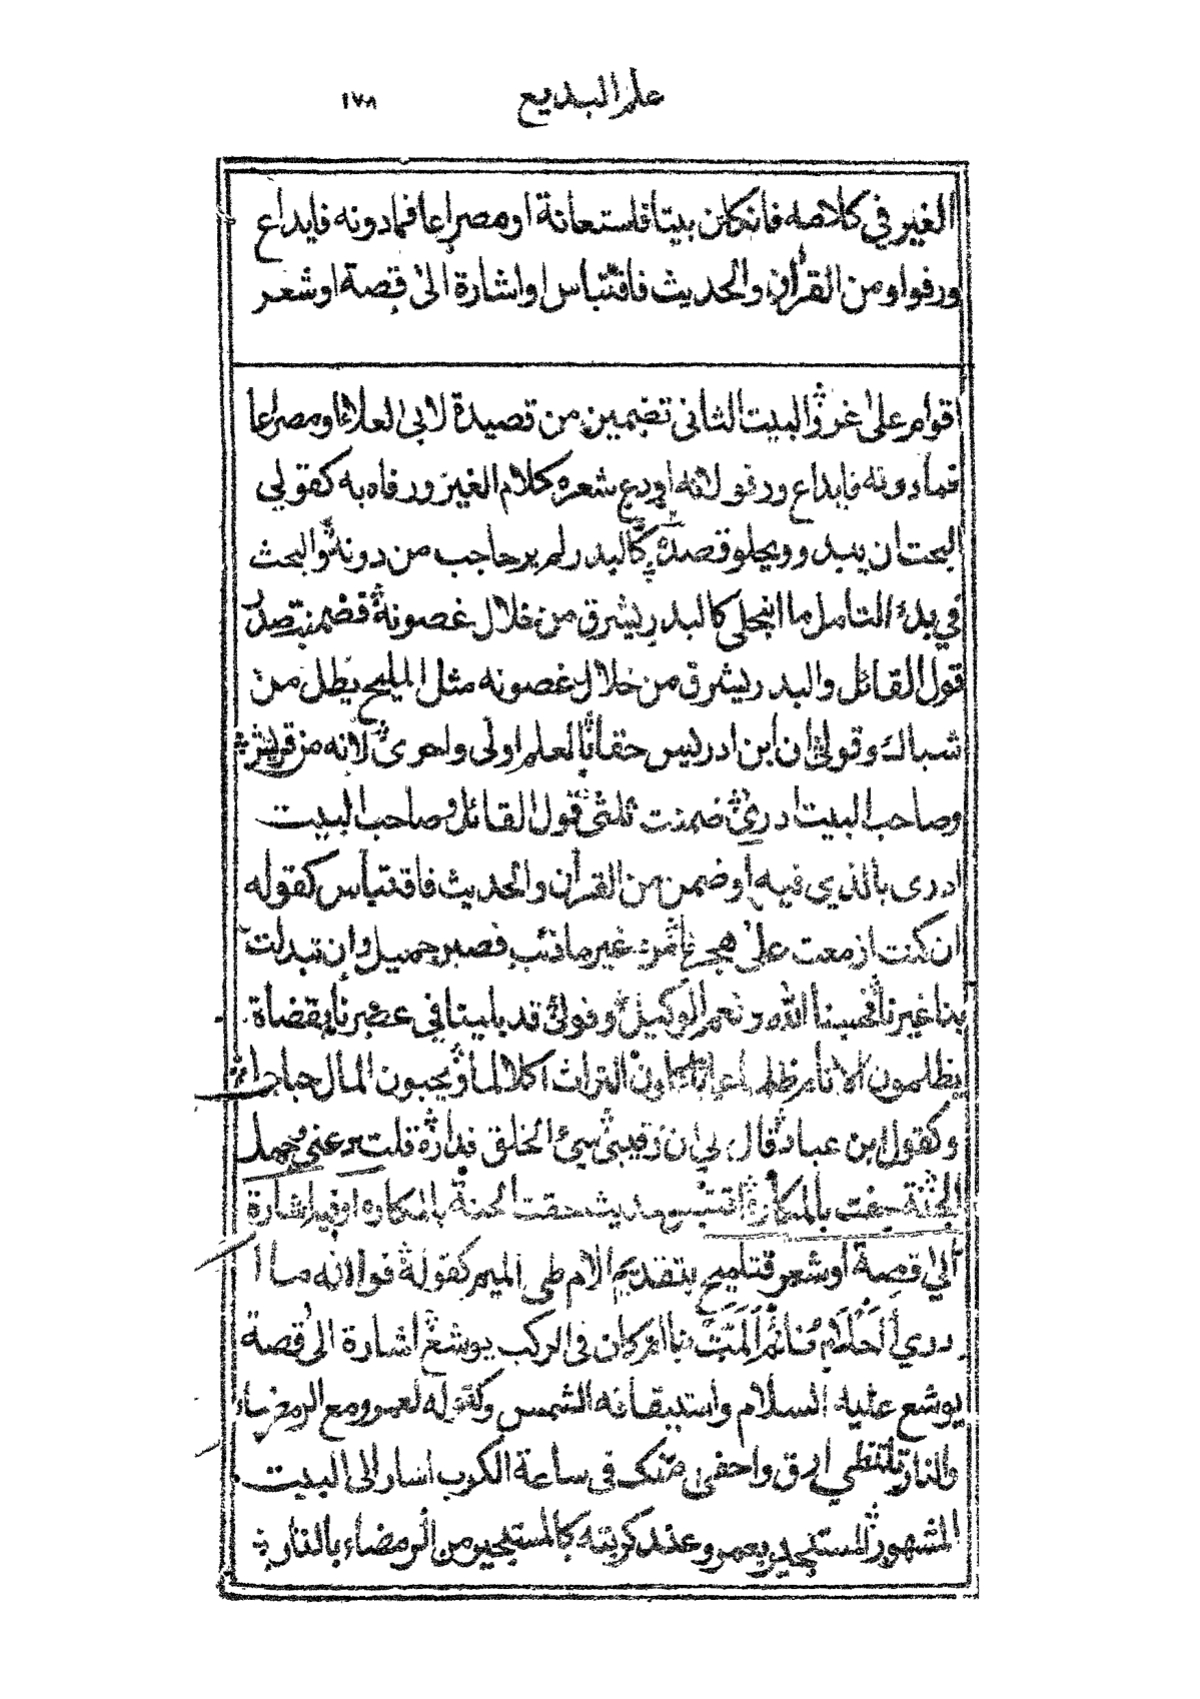 علم البديع ١٧٨
الغير في كلامه فان كان بيتا فاستعانة او مصراعا فما دونه فايداع
ورفو او من القرآن والحديث فاقتباس او اشارة الى قصة او شعر
اقوام على غرر البيت الثانى تضمين من قصيدة لابى العلاء او مصراعا
فما دونه فايداع ورفو لانه اودع شعره كلام الغير ورفاه به كقولي
البحث ان يبدو ويحلو قصده كالبدر لم يرحاجب من دونه والبحث
في بدء التامل ما انجلى كالبدر يشرق من خلال غصونه فضمنت صدر
قول القائل والبدر يشرق من خلال غصونه مثل المليح يطل من
شباك وقولي ان ابن ادريس حقا بالعلم اولى واحرى لانه من قريش
وصاحب البيت ادرى ضمنت ثلثي قول القائل وصاحب البيت
ادرى بالذي فيه او ضمن من القرآن والحديث فاقتباس كقوله
ان كنت ازمعت على هجرنا من غير ما ذنب فصبر جميل وان تبدلت
بنا غيرنا فحسبنا الله ونعم الوكيل وقولي قد بلينا في عصرنا بقضاة
يظلمون الانام ظلما عما ياكلون التراث اكلا لما ويحبون المال حبا جما
وكقول ابن عباد قال لي ان رقيبي سيئ الخلق فداره قلت دعني وجهك
الجنة حفت بالمكاره اقتبس حديث حفت الجنة بالمكاره او فيه اشارة
الى قصة او شعر فتلميح بتقديم الام على الميم كقوله فوالله ما ا
دري أأحلام نائم ألمت بنا ام كان في الركب يوشع اشارة الى قصة
يوشع عليه السلام واستيقافه الشمس وكقوله لعمرو مع الرمضاء
والنار تلتظي ارق واحفى منك في ساعة الكرب اشار الى البيت
المشهور المستجير بعمرو عند كربته كالمستجير من الرمضاء بالنار